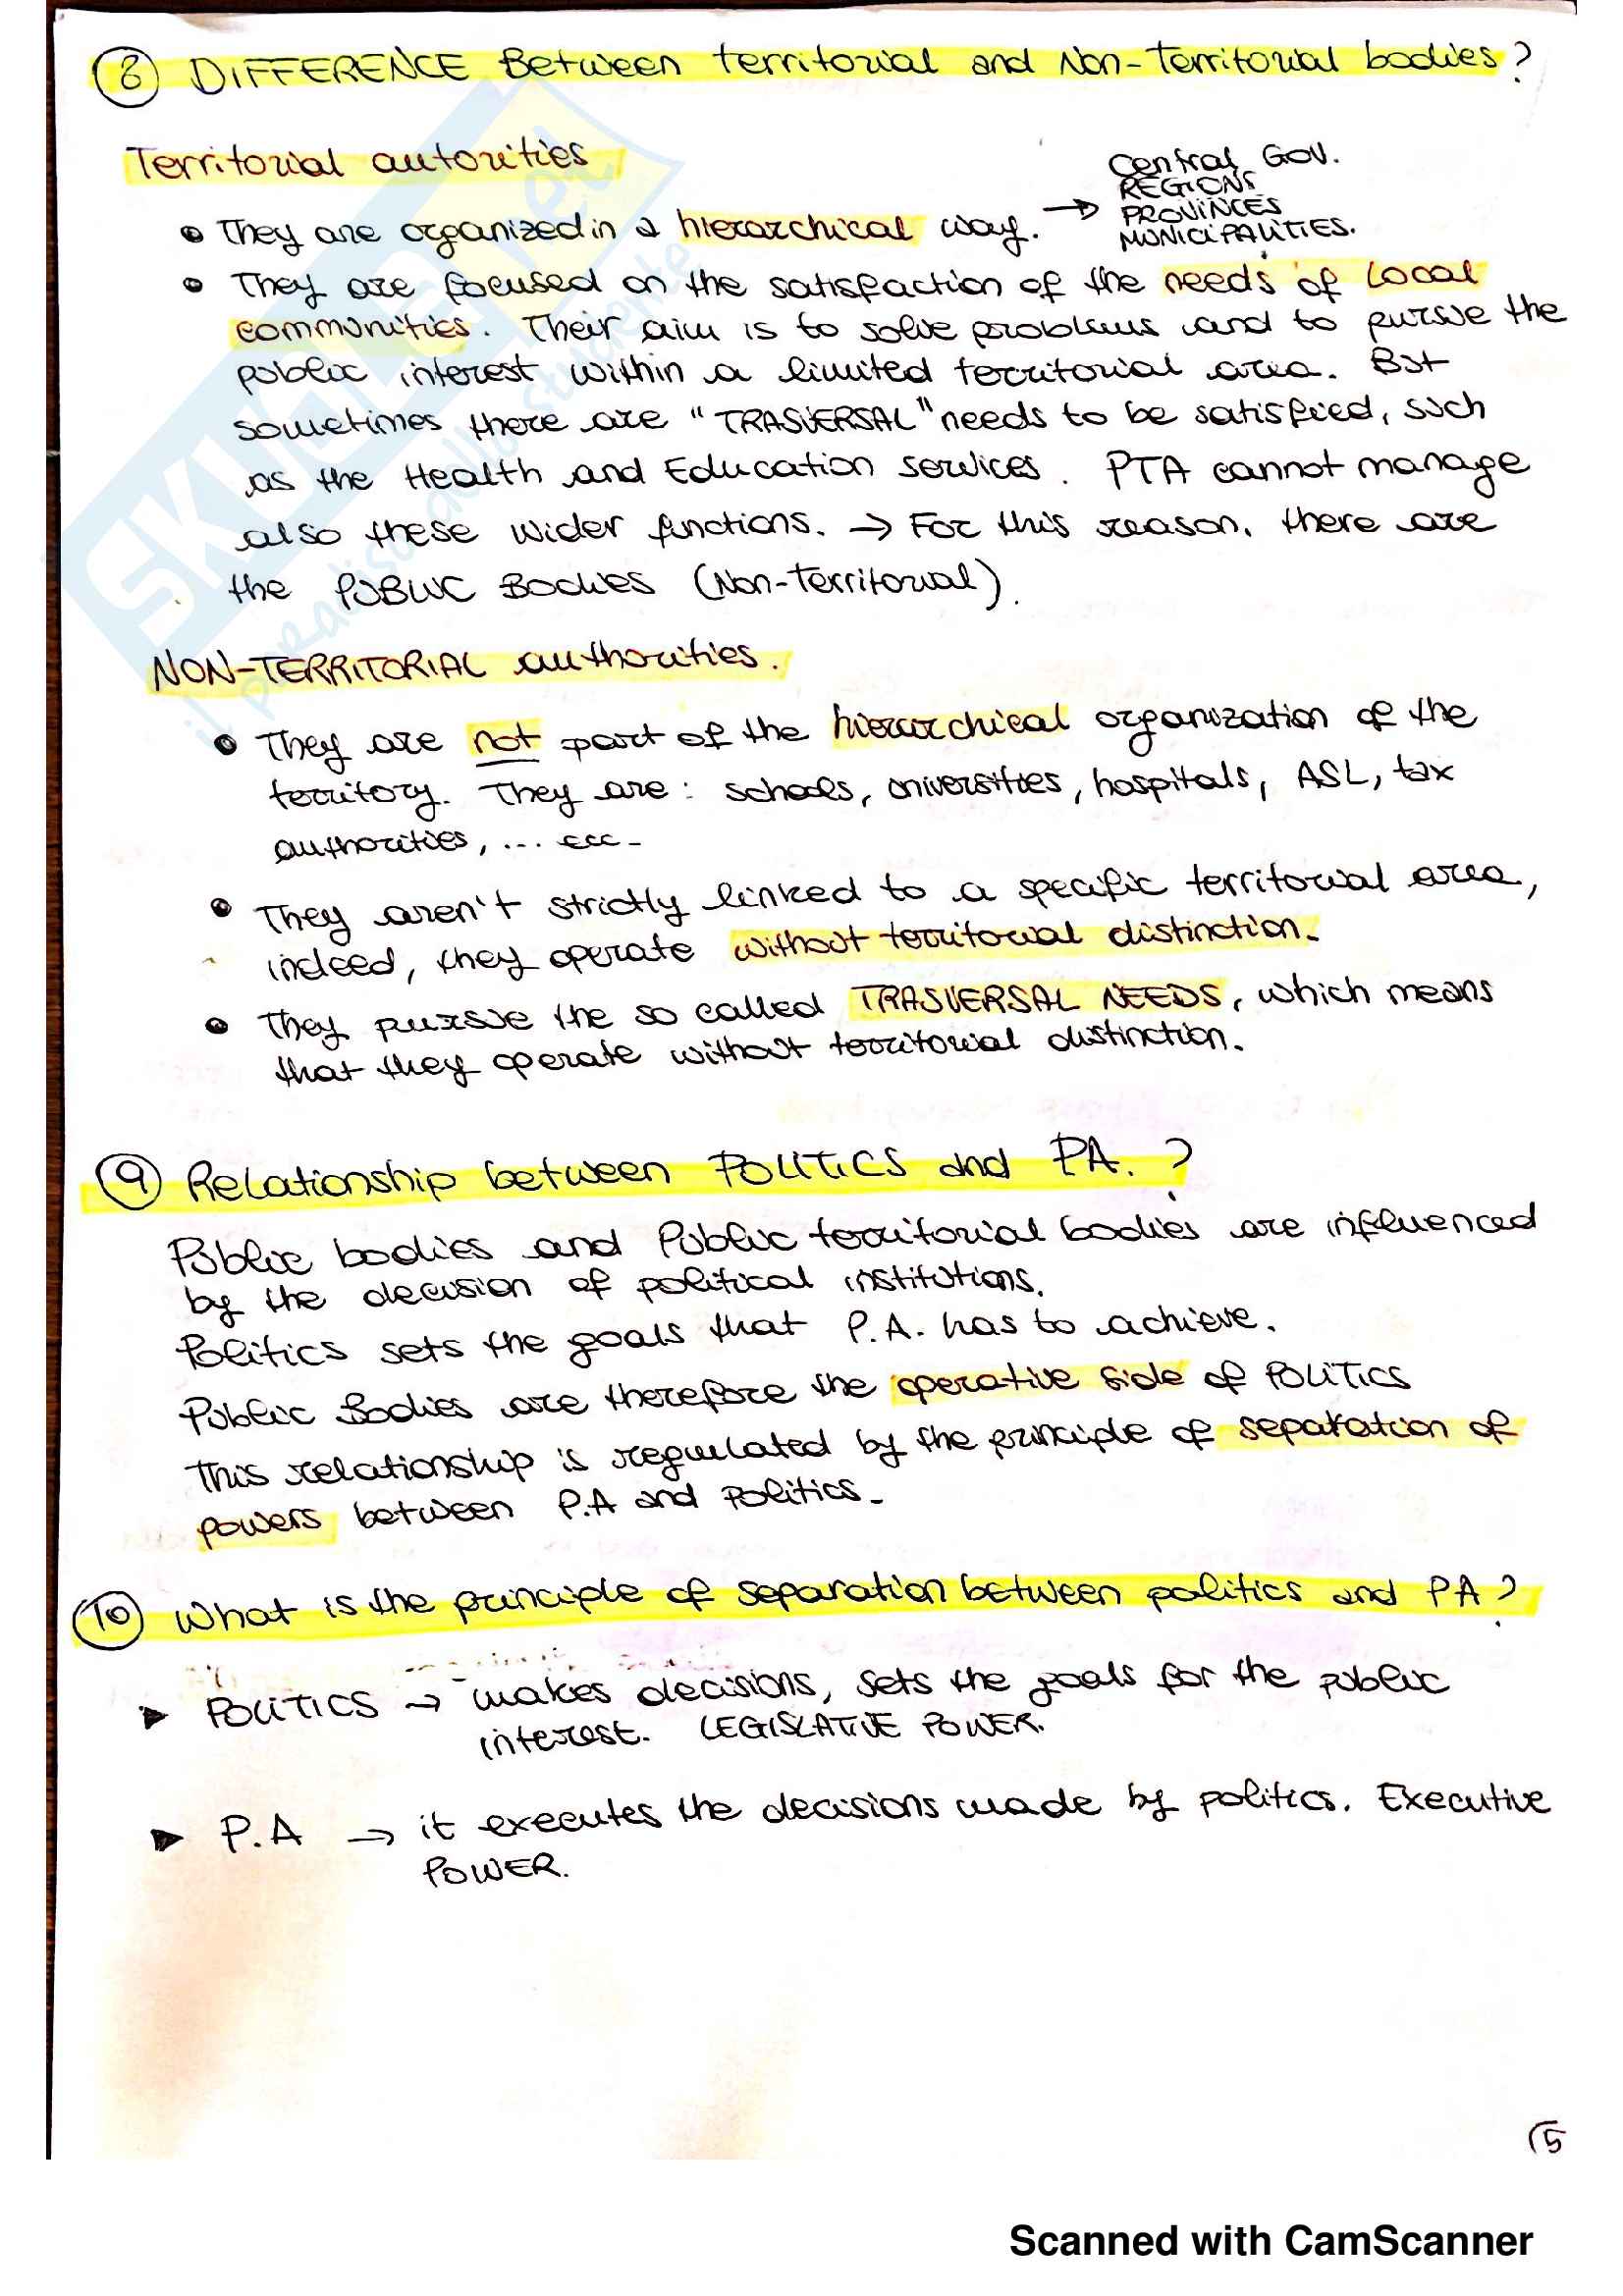 8 DIFFERENCE Between territorial and Non-Territorial bodies?
Territorial autorities
• They are organized in a hierarchical way. → Central Gov.
REGIONS
PROVINCES
MUNICIPALITIES.
• They are focused on the satisfaction of the needs of local
communities. Their aim is to solve problems and to pursue the
public interest within a limited territorial area. But
sometimes there are "TRASVERSAL" needs to be satisfied, such
as the Health and Education services. PTA cannot manage
also these wider functions. → For this reason, there are
the PUBLIC BODIES (Non-Territorial).
NON-TERRITORIAL authorities.
• They are not part of the hierarchical organization of the
territory. They are: schools, universities, hospitals, ASL, tax
authorities, ... ecc-
• They aren't strictly linked to a specific territorial area,
indeed, they operate without territorial distinction.
• They pursue the so called TRASVERSAL NEEDS, which means
that they operate without territorial distinction.
9 Relationship between POLITICS and PA.?
Public bodies and Public territorial bodies are influenced
by the decision of political institutions.
Politics sets the goals that P.A. has to achieve.
Public Bodies are therefore the operative side of POLITICS
This relationship is regulated by the principle of separation of
powers between P.A and politics.
10 What is the principle of separation between politics and PA?
► POLITICS → makes decisions, sets the goals for the public
interest. LEGISLATIVE POWER.
► P.A → it executes the decisions made by politics. Executive
POWER.
5
Scanned with CamScanner
SKUOLA.net
il paradiso dello studente